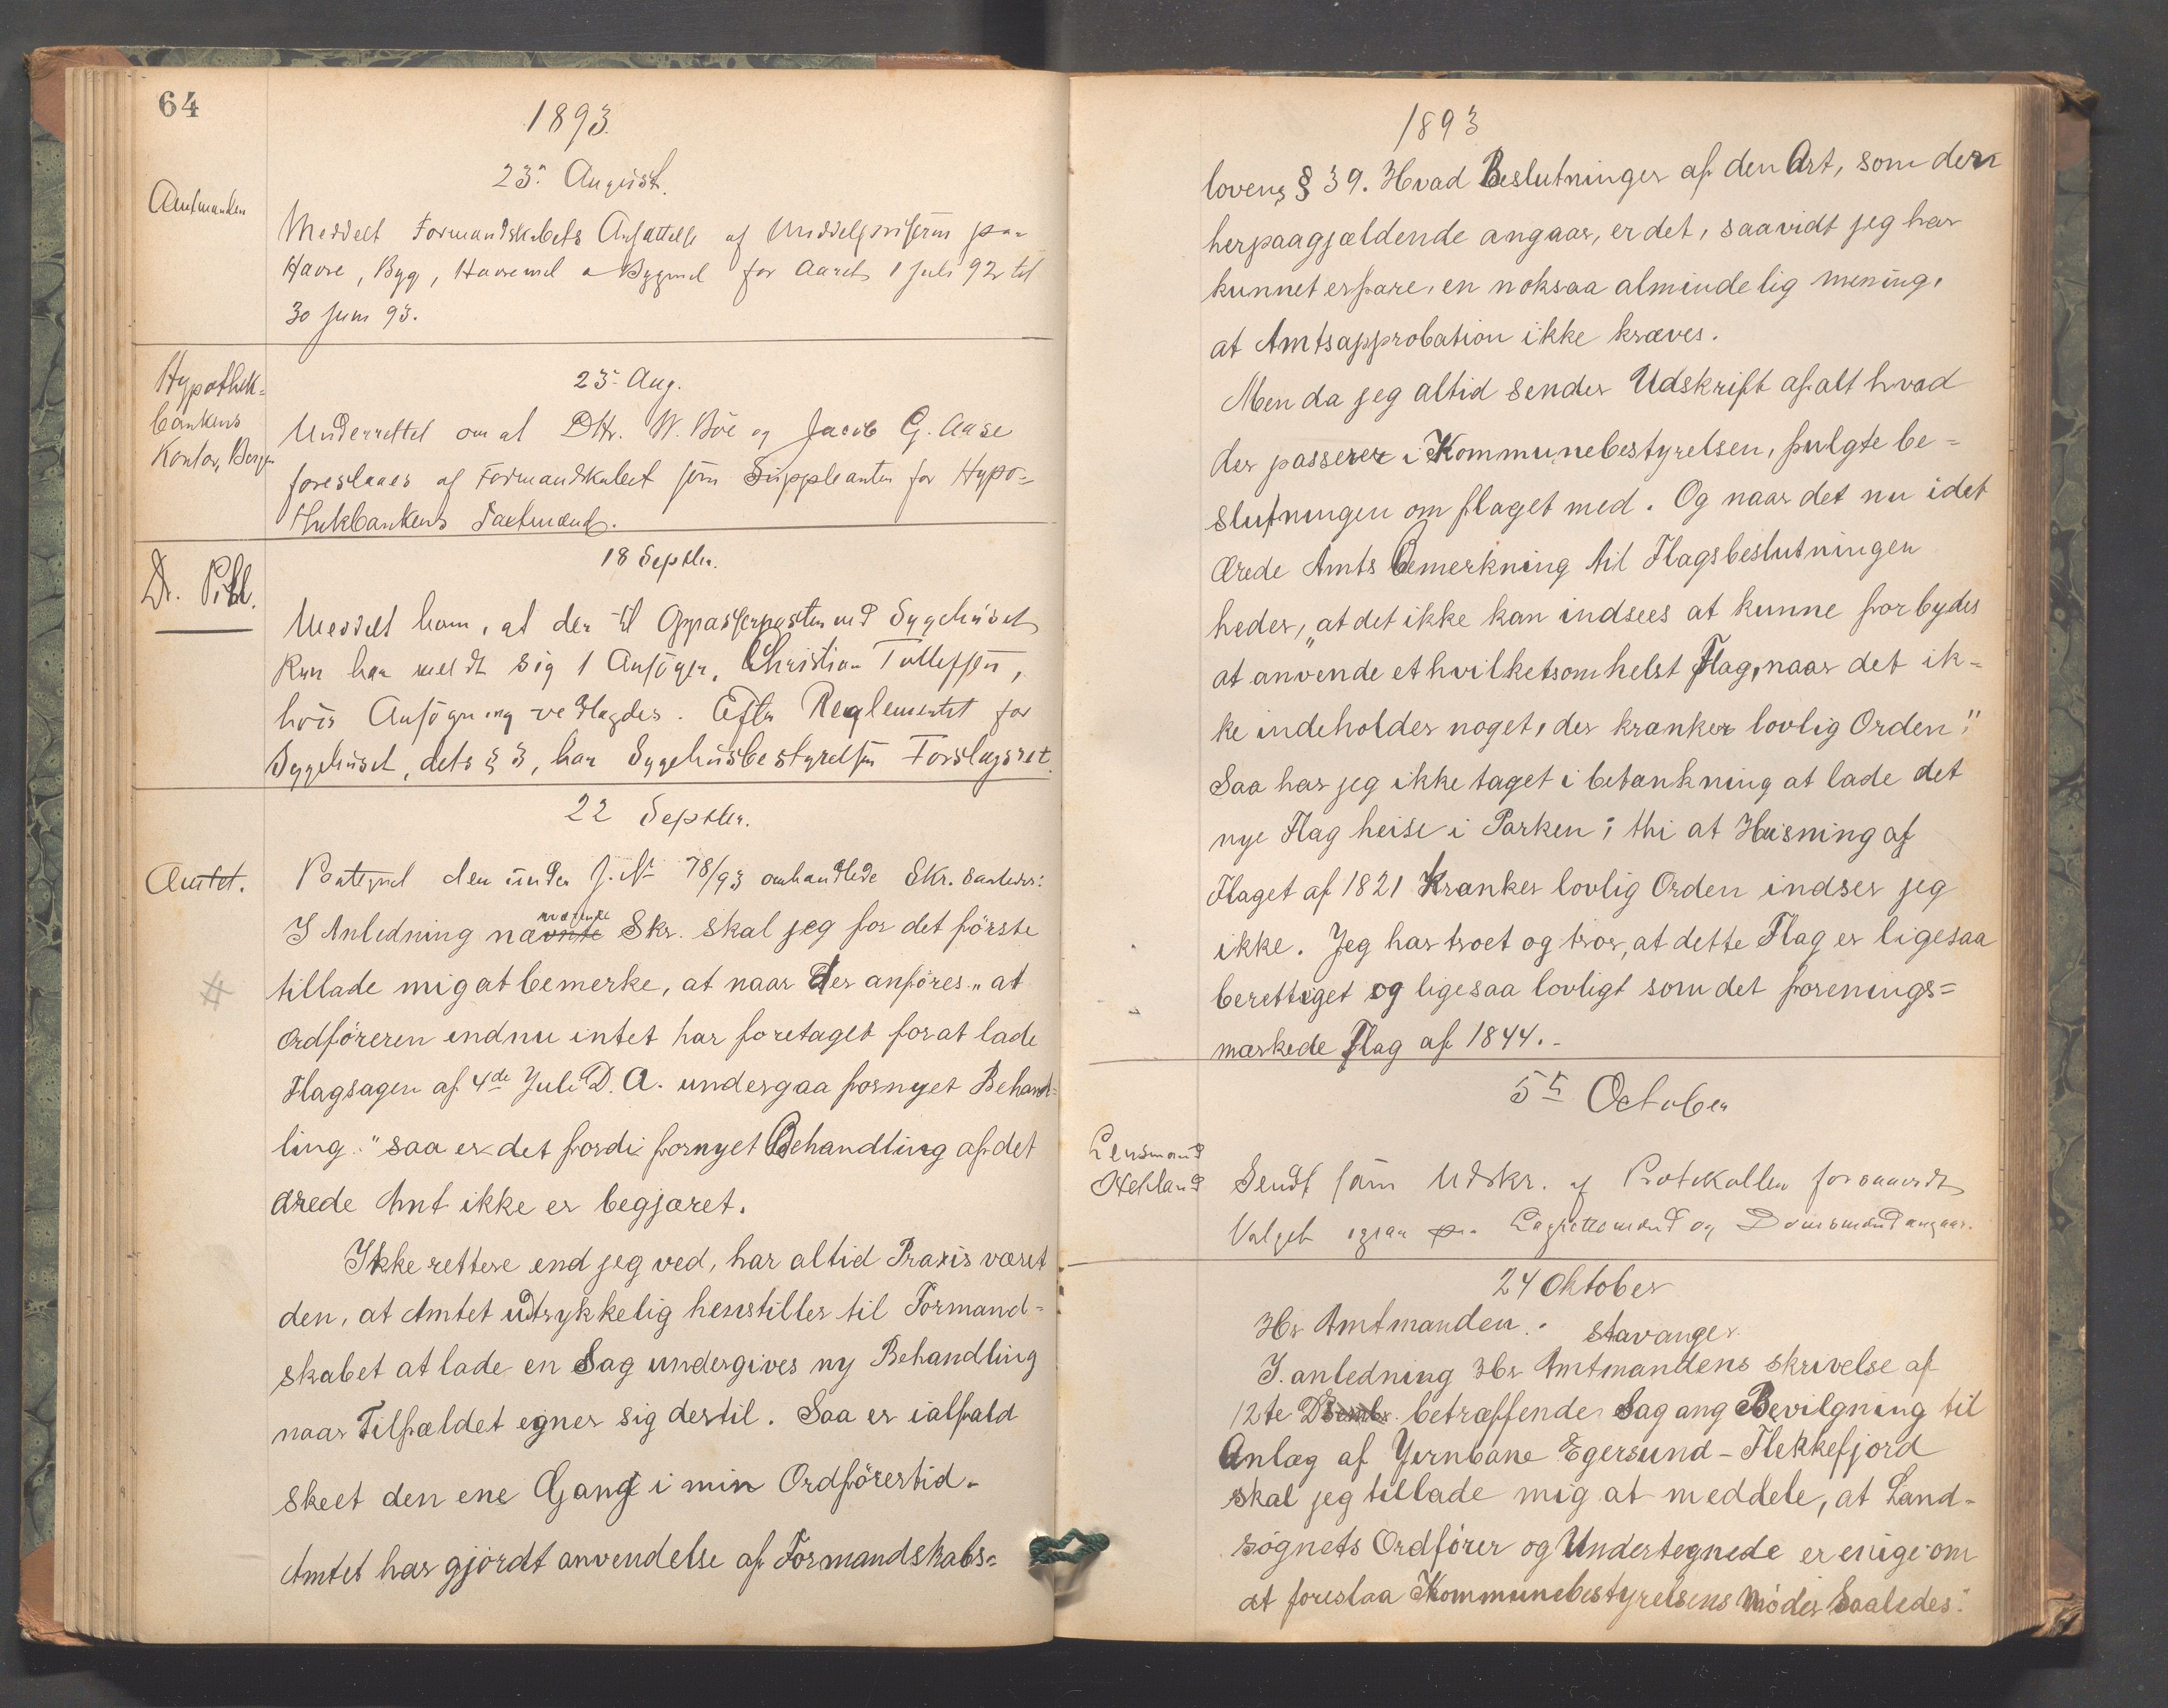 64
1893
23. August.
Amtmanden
Meddelt Formandskabets Ansættelse af Middelprisern paa
Havre, Byg, Havremel & Bygmel for Aaret 1 Juli 92 til
30 Juni 93.
Hypothek-
bankens
Kontor, Bergen
23. Aug.
Underrettet om at DHr. W. Böe og Jacob G. Aase
foreslaaes af Formandskabet som Suppleanter for Hypo=
thekbankens Taxtmænd.
18 Septbr.
Dr. Pihl.
Meddelt ham, at der til Oppasserposten ved Sygehuset
kun har meldt sig 1 Ansöger, Christian Tollefsen,
hvis Ansögning vedlagdes. Efter Reglementet for
Sygehuset, dets § 3, har Sygehusbestyrelsen Forslagsret.
22 Septbr.
Amtet.
Paategnet den under J. No 78/93 omhandlede Skr. saaledes:
I Anledning nævnte Skr. skal jeg for det förste
tillade mig at bemerke, at naar der anföres „at
Ordföreren endnu intet har foretaget for at lade
Flagsagen af 4de Juli D. A. undergaa fornyet Behand=
ling." saa er det fordi fornyet Behandling af det
ærede Amt ikke er begjæret.
Ikke rettere end jeg ved, har altid Praxis været
den, at Amtet udtrykkelig henstiller til Formand=
skabet at lade en Sag undergives ny Behandling
naar Tilfældet egner sig dertil. Saa er ialfald
skeet den ene Gang i min Ordförertid.
Amtet har gjördt anvendelse af Formandskabs=
1893
lovens § 39. Hvad Beslutninger af den Art, som den
herpaagjældende angaar, er det, saavidt jeg har
kunnet erfare, en noksaa almindelig mening,
at Amtsapprobation ikke kræves.
Men da jeg altid sender Udskrift af alt hvad
der passerer i Kommunebestyrelsen, fulgte be=
slutningen om flaget med. Og naar det nu i det
ærede Amts Bemerkning til Flagsbeslutningen
heder, „at det ikke kan indsees at kunne forbydes
at anvende et hvilketsomhelst Flag, naar det ik=
ke indeholder noget, der krænker lovlig Orden"
Saa har jeg ikke taget i betænkning at lade det
nye Flag heise i Parken; thi at Heisning af
Flaget af 1821 krænker lovlig Orden indser jeg
ikke. Jeg har troet og tror, at dette Flag er ligesaa
berettiget og ligesaa lovligt som det forenings=
mærkede Flag af 1844.-
5te October
Lensmand
Hetland
Sendt ham Udskr. af Protokollen forsaavidt
Valget paa Lagrettemænd og Domsmænd angaar.
24 Oktober
Hr Amtmanden. Stavanger.
I. anledning Hr Amtmandens skrivelse af
12te betræffende Sag ang Bevilgning til
Anlæg af Jernbane Egersund - Flekkefjord
skal jeg tillade mig at meddele, at Land-
sognets Ordförer og Undertegnede er enige om
at foreslaa Kommunebestyrelsens Möder saaledes: